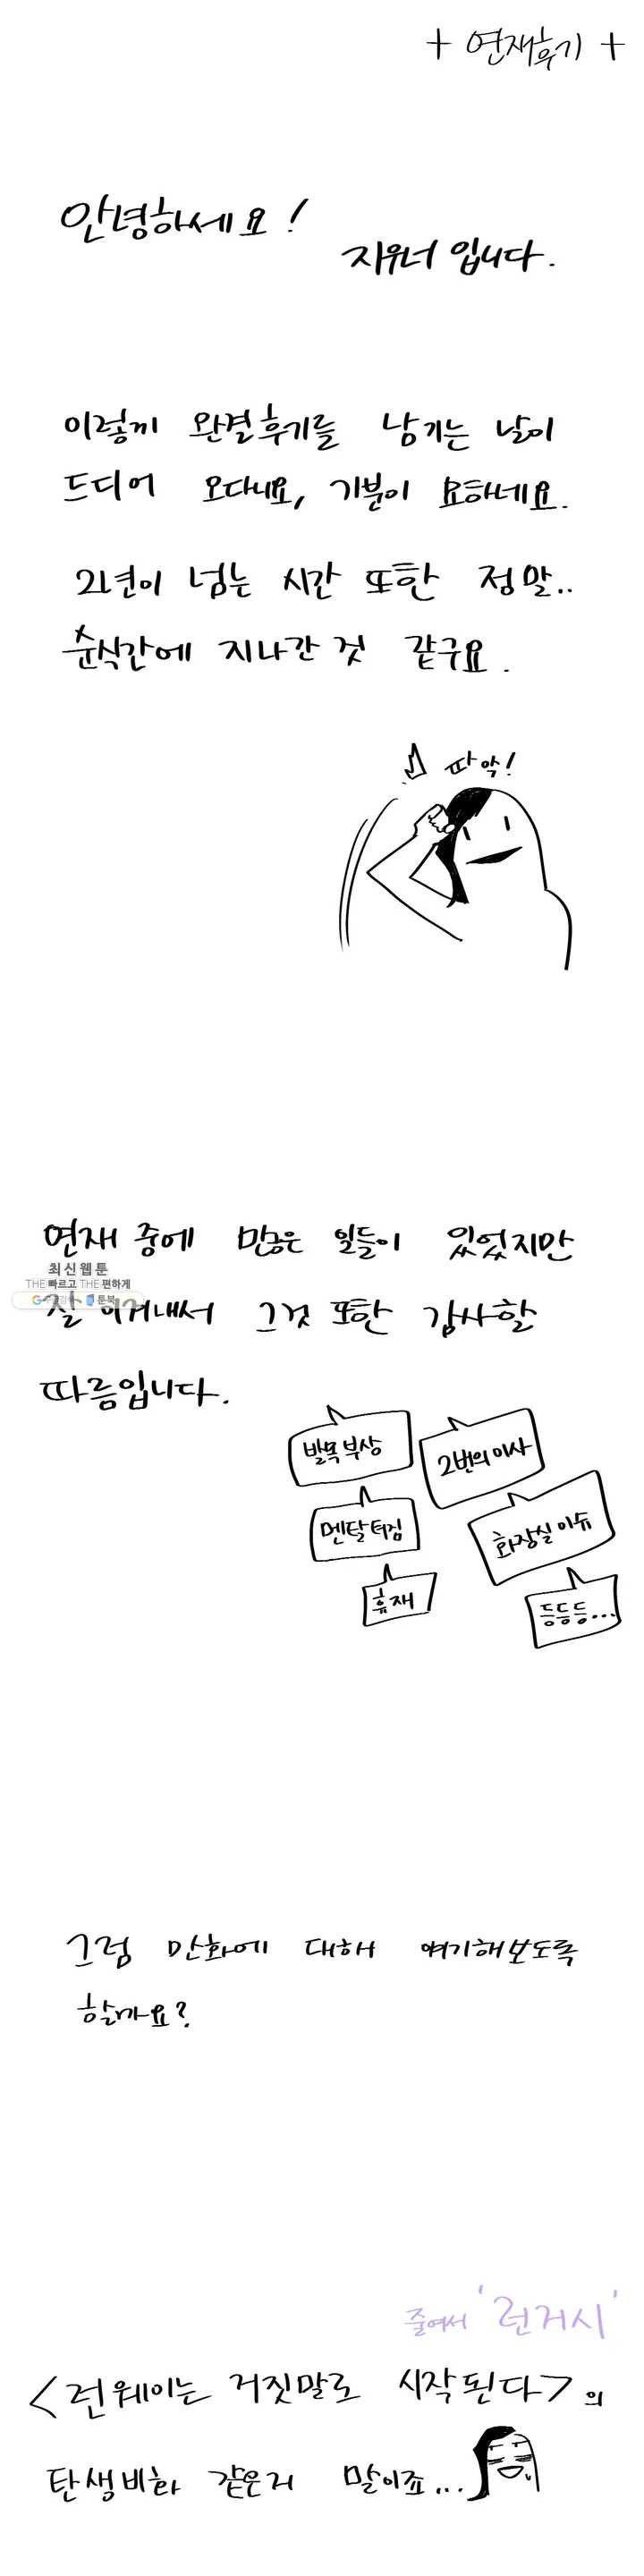 + 연재후기 +
안녕하세요!
지워너 입니다.
이렇게 완결후기를 남기는 날이
드디어 오다니요, 기분이 묘하네요.
2년이 넘는 시간 또한 정말..
순식간에 지나간 것 같구요.
파악!
연재 중에 많은 일들이 있었지만
최신웹툰
THE 빠르고 THE 편하게
잘 이겨내서 그것 또한 감사할
따름입니다.
발목 부상
2번의 이사
멘탈 터짐
화장실 이슈
휴재
등등등...
그럼 만화에 대해 얘기해보도록
할까요?
줄여서 '런거시'
<런웨이는 거짓말로 시작된다>의
탄생비화 같은거 말이죠...